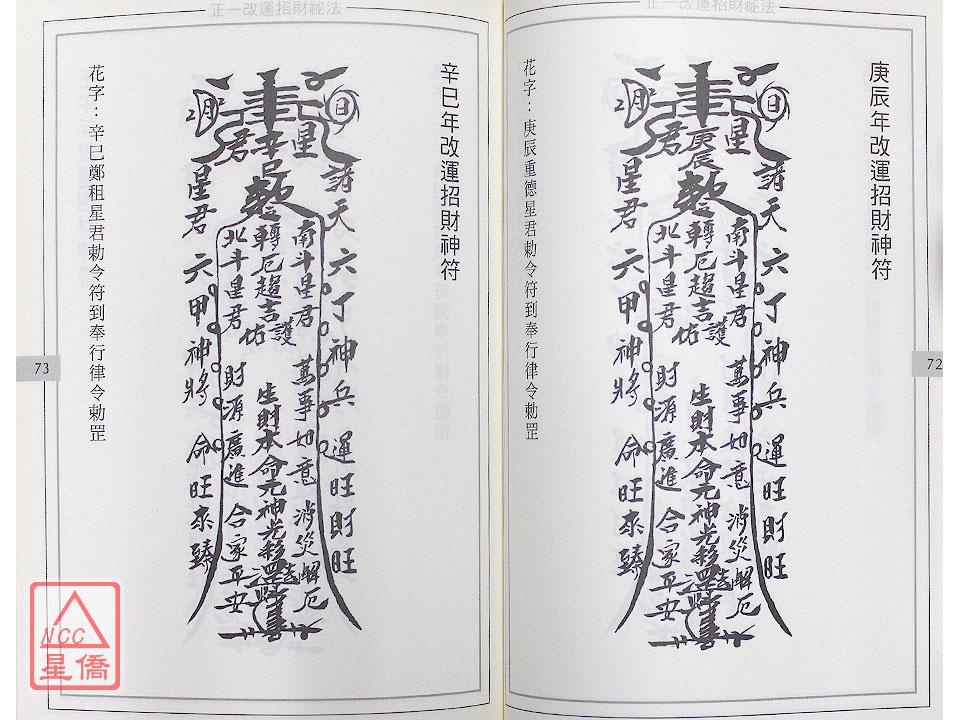 正一改運招財祕法
庚辰年改運招財神符
日
諸天六丁神兵運旺財旺
星
南斗星君 萬事如意 消災解厄
庚辰
敕
轉厄趨吉護佑
生財本命元神光彩
君
北斗星君 財源廣進 合家平安
月
星君六甲神將命旺來臻
花字：庚辰重德星君勅令符到奉行律令勅罡
72
正一改運招財祕法
辛巳年改運招財神符
日
諸天六丁神兵運旺財旺
星
南斗星君 萬事如意 消災解厄
辛巳
敕
轉厄趨吉護佑
生財本命元神光彩
君
北斗星君 財源廣進 合家平安
月
星君六甲神將命旺來臻
花字：辛巳鄭租星君勅令符到奉行律令勅罡
73
NCC
星僑